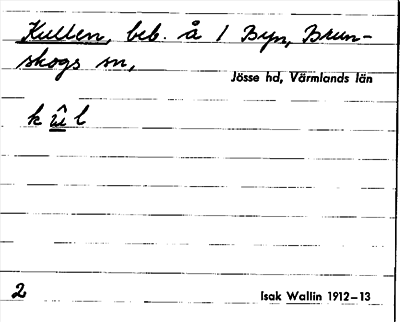 Kullen, beb. å 1 Byn, Brun-
skogs sn,
Jösse hd, Värmlands län
k û l
2
Isak Wallin 1912–13